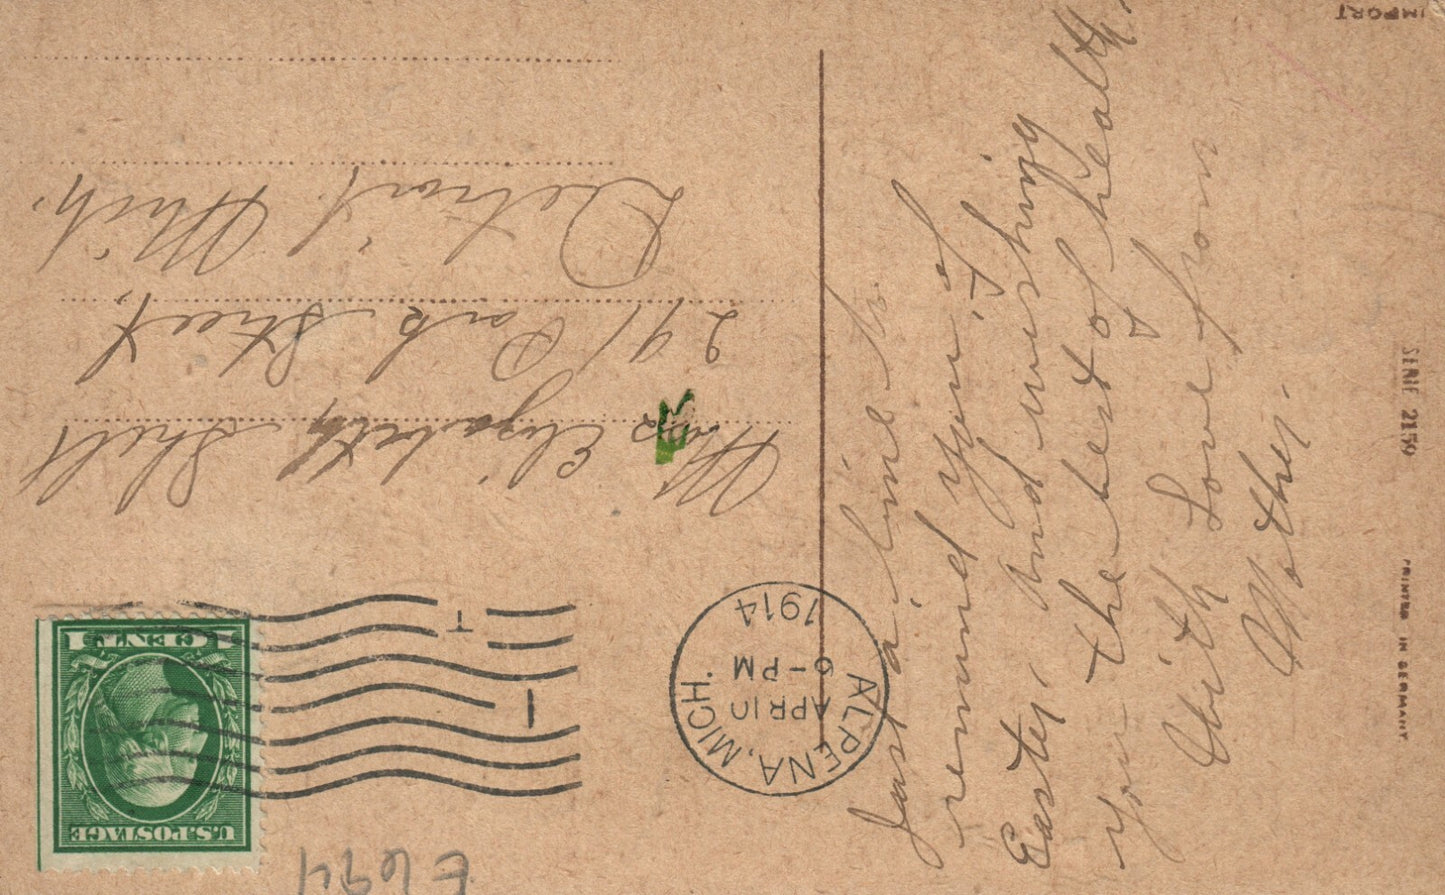 Just a line to
remind you of
Easter, and wishing
you the best of health,
With Love from
Mother.
ALPENA, MICH.
APR 10
6-PM
1914
T
1
U.S. POSTAGE
1 CENT 1
Miss Elizabeth Shell
291 Park Street,
Detroit, Mich.
E694
IMPORT
SERIE 2159
PRINTED IN GERMANY